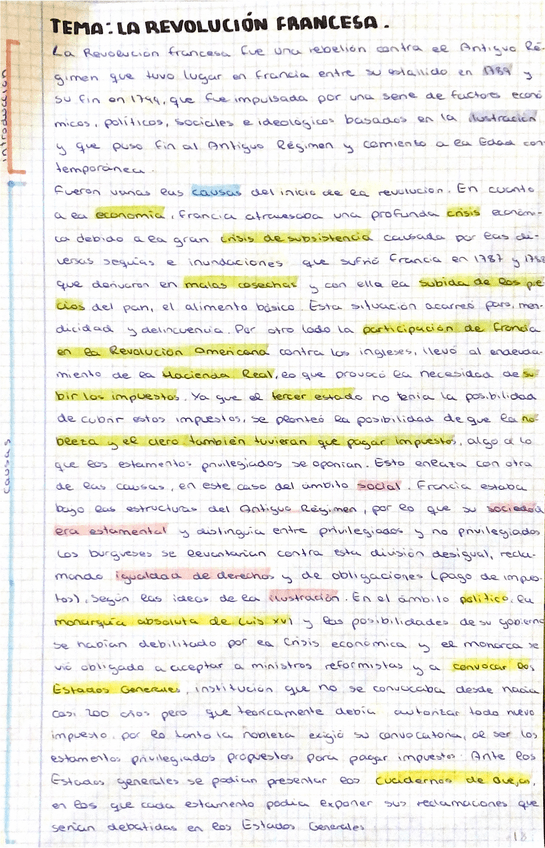 TEMA: LA REVOLUCIÓN FRANCESA.
La Revolución francesa fue una rebelión contra el Antiguo Ré-
gimen que tuvo lugar en Francia entre su estallido en 1789 y
su fin en 1799, que fue impulsada por una serie de factores econó
micos, políticos, sociales e ideológicos basados en la Ilustración
y que puso fin al Antiguo Régimen y comienzo a la Edad con
temporánea.
introducción
Fueron varias las causas del inicio de la revolución. En cuanto
a la economía, Francia atravesaba una profunda crisis económi-
ca debido a la gran crisis de subsistencia causada por las di-
versas sequías e inundaciones que sufrió Francia en 1787 y 1788
que derivaron en malas cosechas y con ella la subida de los pre
cios del pan, el alimento básico. Esta situación acarreó paro, men-
dicidad y delincuencia. Por otro lado la participación de Francia
en la Revolución Americana contra los ingleses, llevó al endeuda-
miento de la Hacienda Real, lo que provocó la necesidad de su
bir los impuestos. Ya que el tercer estado no tenía la posibilidad
de cubrir estos impuestos, se planteó la posibilidad de que la no
bleza y el clero también tuvieran que pagar impuestos, algo a lo
que los estamentos privilegiados se oponían. Esto enlaza con otra
de las causas, en este caso del ámbito social. Francia estaba
bajo las estructuras del Antiguo Régimen, por lo que su sociedad
era estamental y distinguía entre privilegiados y no privilegiados
Los burgueses se levantarían contra esta división desigual, recla-
mando igualdad de derechos y de obligaciones (pago de impues-
tos), según las ideas de la ilustración. En el ámbito político, la
monarquía absoluta de Luis XVI y las posibilidades de su gobierno
se habían debilitado por la crisis económica y el monarca se
vió obligado a aceptar a ministros reformistas y a convocar los
Estados Generales, institución que no se convocaba desde hacía
casi 200 años pero que teóricamente debía autorizar todo nuevo
impuesto, por lo tanto la nobleza exigió su convocatoria, al ser los
estamentos privilegiados propuestos para pagar impuesto. Ante los
Estados generales se podían presentar los Cuadernos de Quejas,
en los que cada estamento podía exponer sus reclamaciones que
serían debatidas en los Estados Generales
causas
18